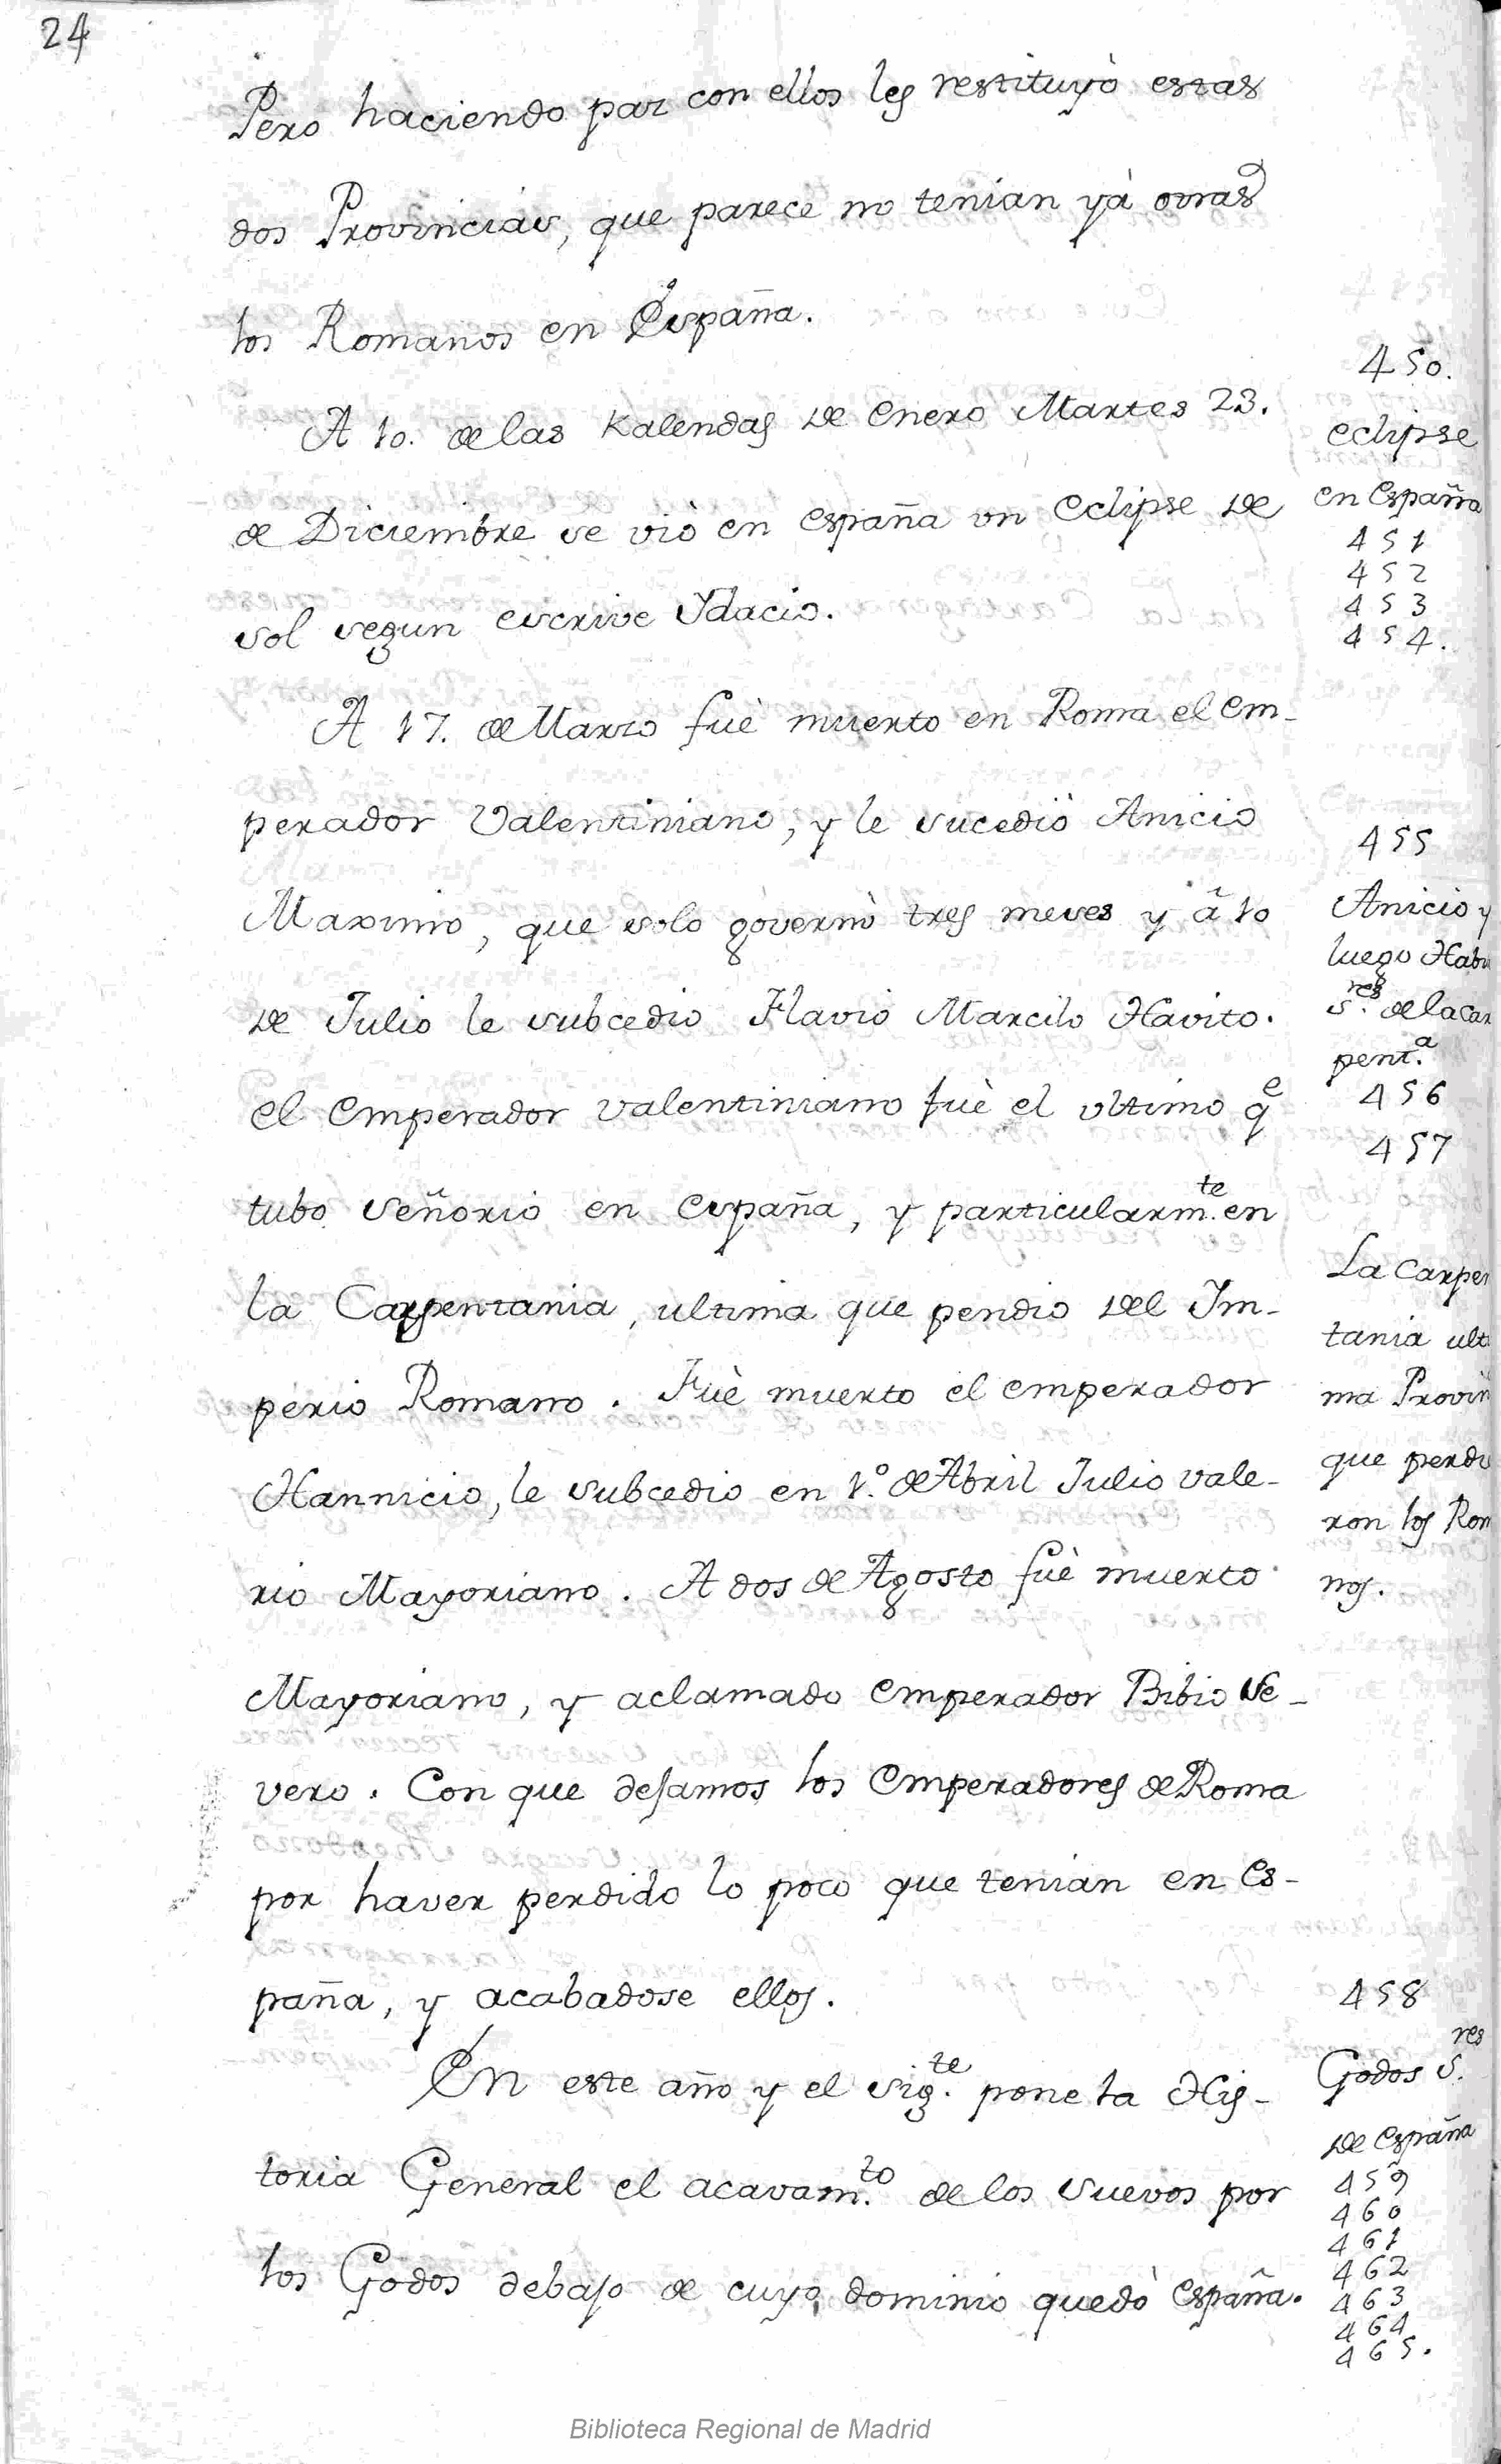 24
Pero haciendo paz con ellos les restituyò estas
dos Provincias, que parece no tenian yà otras
los Romanos en España.
A 10. de las Kalendas de Enero Martes 23.
de Diciembre se viò en España un Eclipse de
sol segun escrive Ydacio.
A 17. de Marzo fuè muerto en Roma el Em-
perador Valentiniano, y le sucediò Anicio
Maximo, que solo governò tres meses y à 10
de Julio le subcedio Flavio Marcilo Havito.
el Emperador Valentiniano fuè el ultimo qe
tubo señorio en España, y particularm.te en
la Carpentania, ultima que pendio del Im-
perio Romano. Fuè muerto el emperador
Hannicio, le subcedio en 1.º de Abril Julio Vale-
rio Mayoriano. A dos de Agosto fuè muerto
Mayoriano, y aclamado Emperador Bibio Se-
vero. Con que dejamos los Emperadores de Roma
por haver perdido lo poco que tenian en Es-
paña, y acabadose ellos.
En este año y el sig.te pone la His-
toria General el acavam.to de los Suevos por
los Godos debajo de cuyo dominio quedò España.
450.
eclipse
en España
451
452
453
454.
455
Anicio y
luego Habi
s.res de la Car
pent.a
456
457
La Carpen
tania ulti
ma Provin
que perdie
ron los Rom
nos.
458
Godos S.res
de España
459
460
461
462
463
464
465.
Biblioteca Regional de Madrid